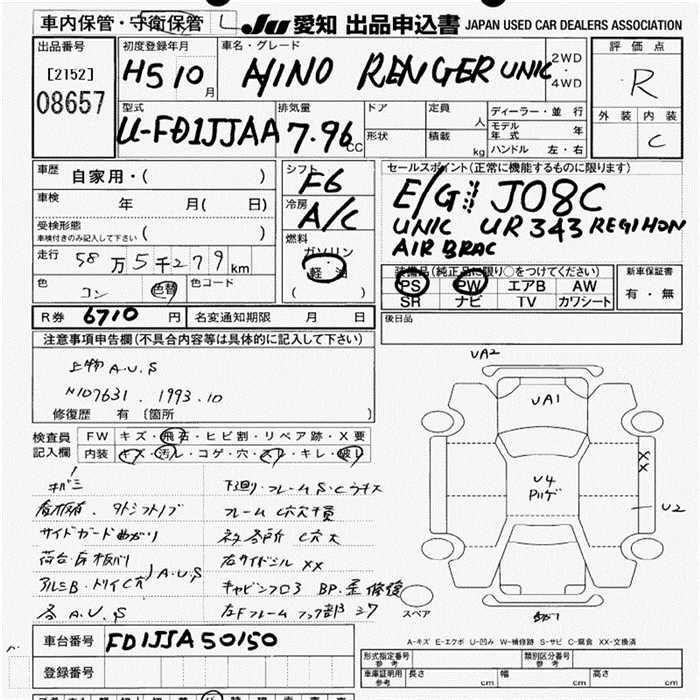 車内保管・守衛保管
JU 愛知 出品申込書 JAPAN USED CAR DEALERS ASSOCIATION
出品番号
[2152]
08657
初度登録年月
H5 10月
車名・グレード
HINO RENGER UNIC
2WD
・
4WD
評価点
R
外装 内装
C
型式
U-FD1JJAA
排気量
7.96 CC
ドア
形状
定員 人
積載 kg
ディーラー・並行
モデル年式 年
ハンドル 左・右
車歴 自家用・( )
車検 年 月( 日)
受検形態
車検付きのみ記入して下さい ( )
走行 58万5千279km
色 コン 色替 色コード
シフト
F6
冷房
A/C
燃料
ガソリン
・
軽油
( )
セールスポイント(正常に機能するものに限ります)
E/G J08C
UNIC UR343 REGIHON
AIR BRAC
装備品(純正品に限り○をつけてください)
PS PW エアB AW
SR ナビ TV カワシート
新車保証書
有・無
R券 6710 円 名変通知期限 月 日
後日品
注意事項申告欄(不具合内容等は具体的に記入して下さい)
上物 A.U.S
N107631. 1993.10
修復歴 有 〔箇所 〕
検査員
記入欄
FW キズ・飛石・ヒビ割・リペア跡・X要
内装 キズ・汚レ・コゲ・穴・スレ・キレ・破レ
サイドガード曲がり
A.U.S
下廻り・フレーム S・C
フレーム C穴
C穴大
右サイドシル XX
キャビンフロア BP.
左Fフレーム
UA2
UA1
U4
XX
U2
スペア
A-キズ E-エクボ U-凹み W-補修跡 S-サビ C-腐食 XX-交換済
車台番号 FD1JJA50150
登録番号
形式指定番号
参考
類別区分番号
参考
車庫証明用
参考
長さ cm 幅 cm 高さ cm